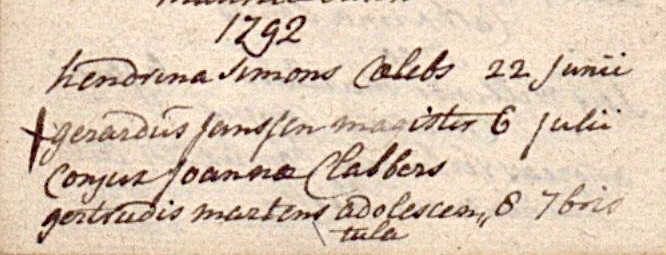 1792
hendrina simons Cælebs 22 junii
gerardus janssen magister 6 julii
conjux joannæ Clabbers
gertrudis martens adolescen„ 8 7bris
tula